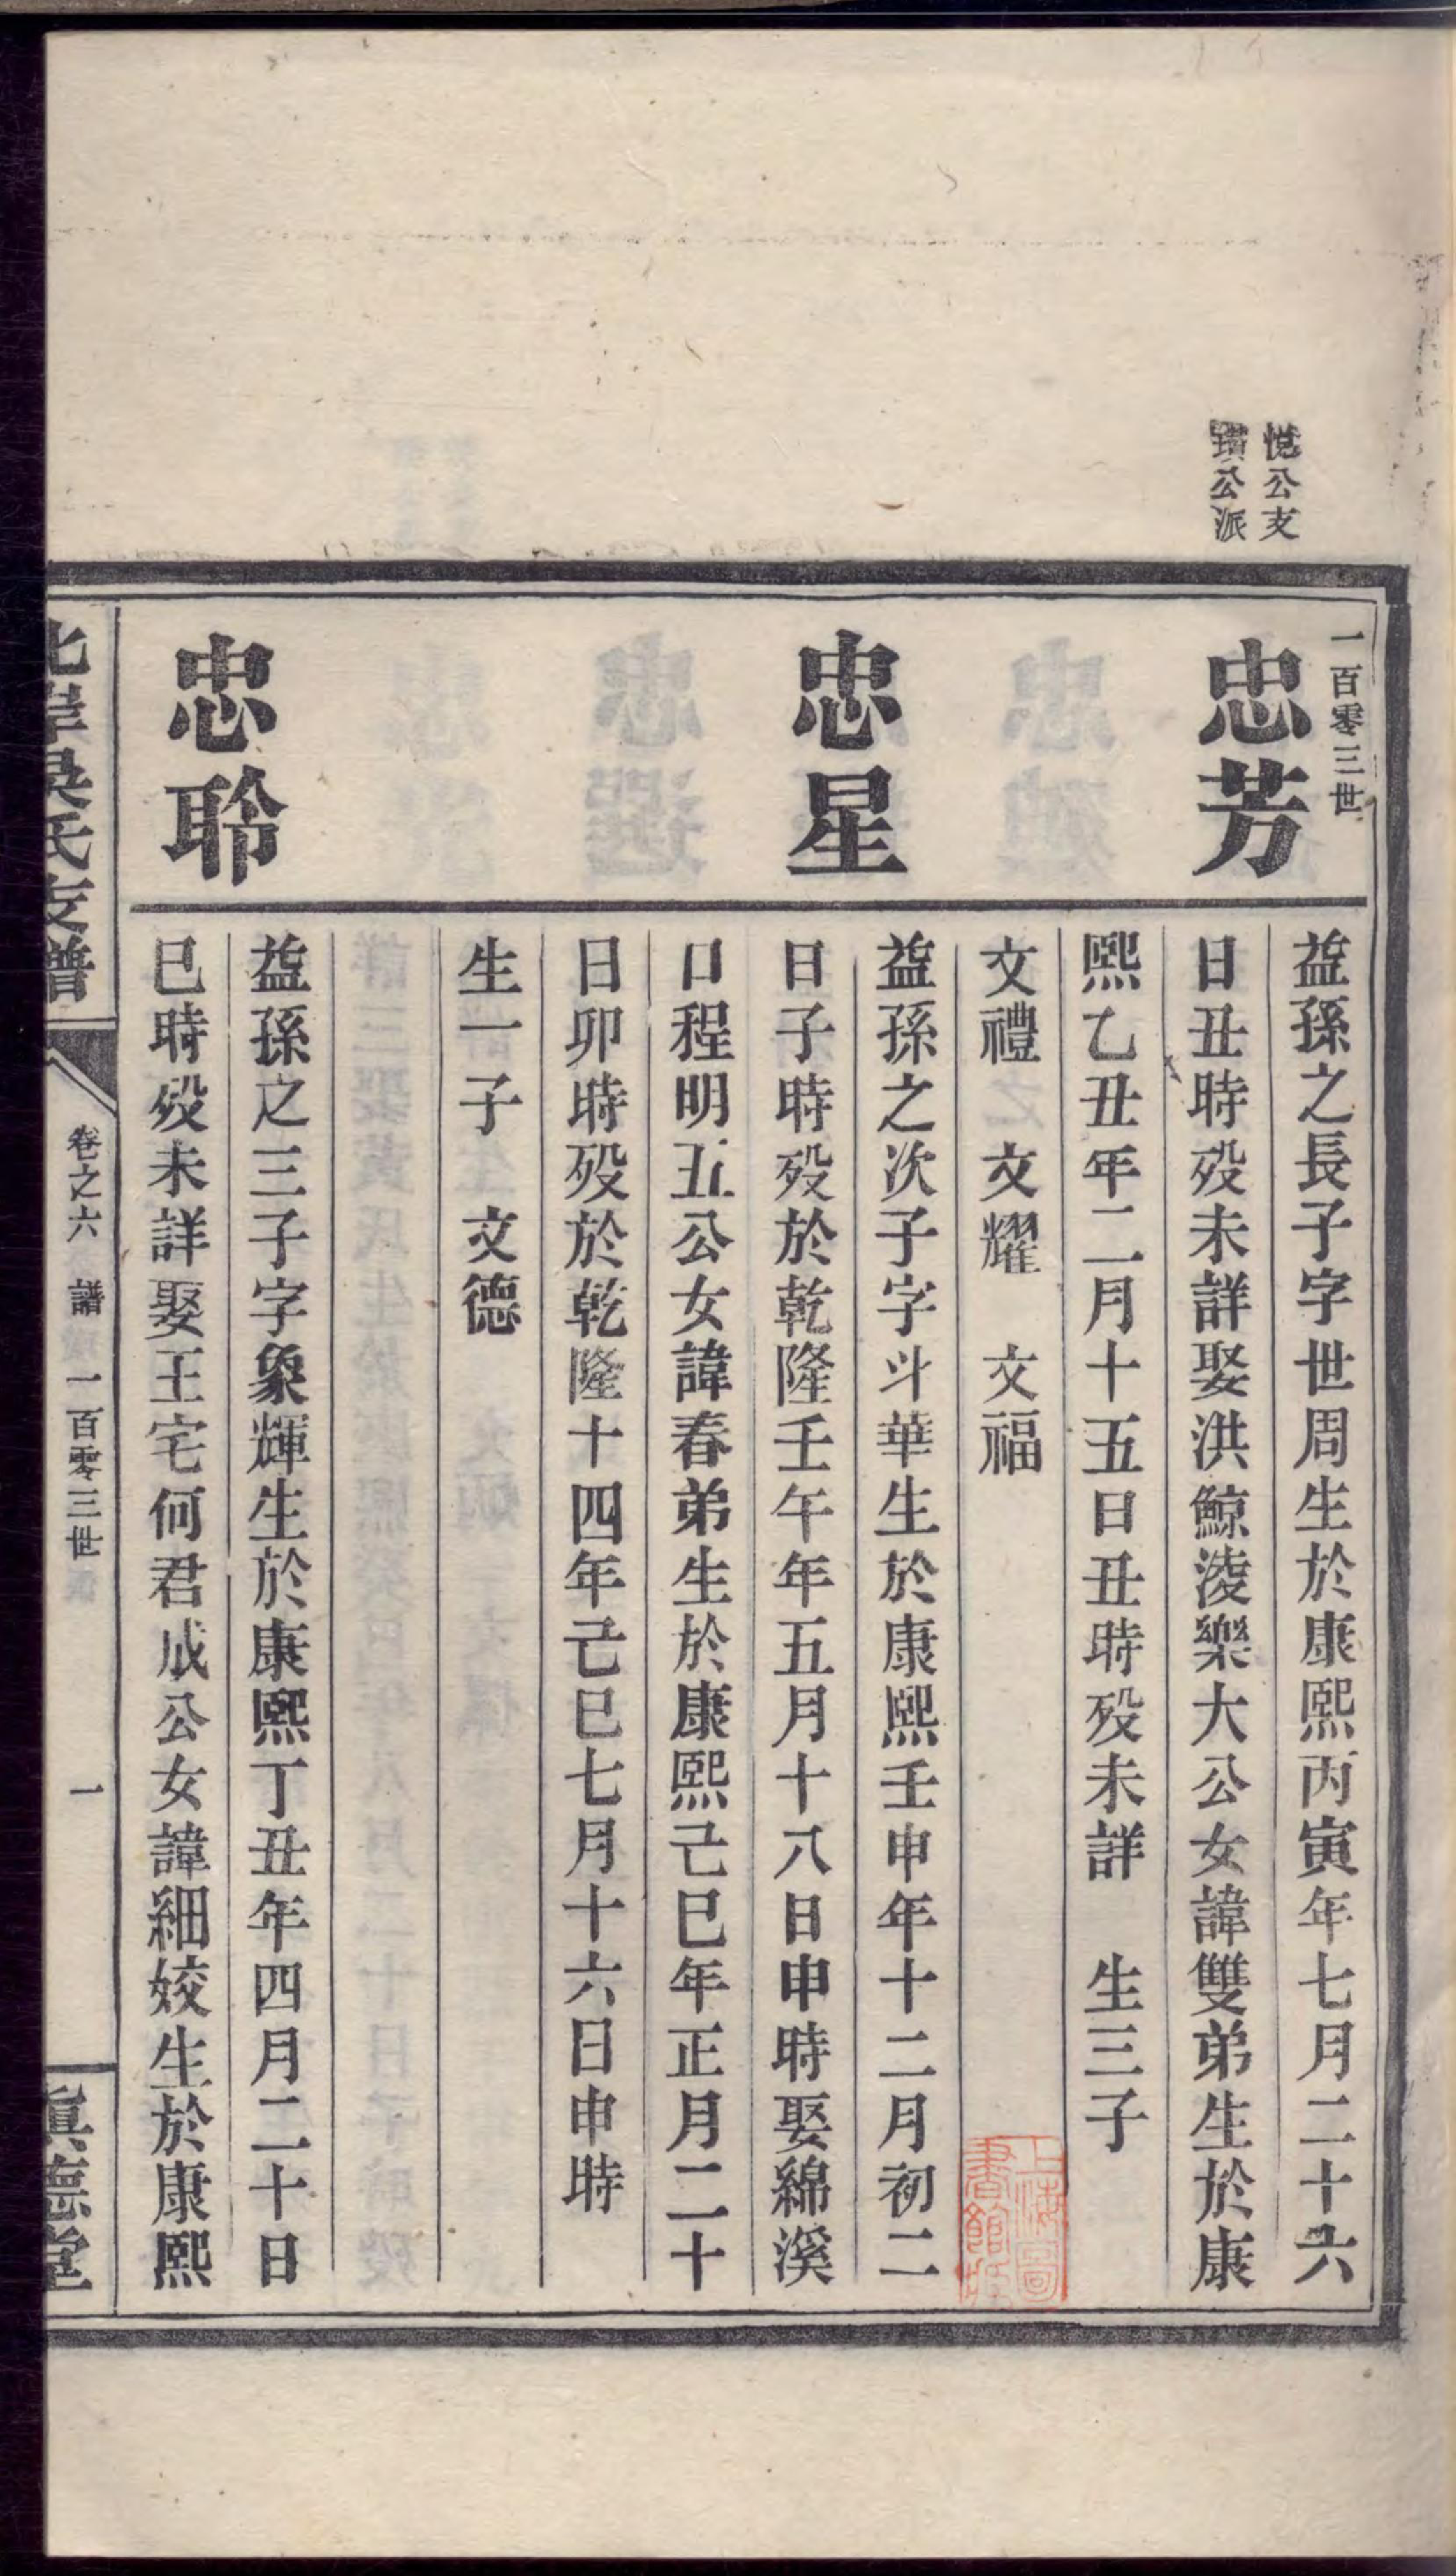 悅公支
璜公派
一百零三世
忠芳
益孫之長子字世周生於康熙丙寅年七月二十六
日丑時歿未詳娶洪鯨淩樂大公女諱雙弟生於康
熙乙丑年二月十五日丑時歿未詳　生三子
文禮　文耀　文福
忠星
益孫之次子字斗華生於康熙壬申年十二月初二
日子時歿於乾隆壬午年五月十八日申時娶綿溪
口程明五公女諱春弟生於康熙己巳年正月二十
日卯時歿於乾隆十四年己巳七月十六日申時
生一子　文德
忠聆
益孫之三子字象輝生於康熙丁丑年四月二十日
巳時歿未詳娶王宅何君成公女諱細姣生於康熙
北岸吳氏支譜
卷之六　譜　一百零三世　一
眞德堂
上海圖
書館藏